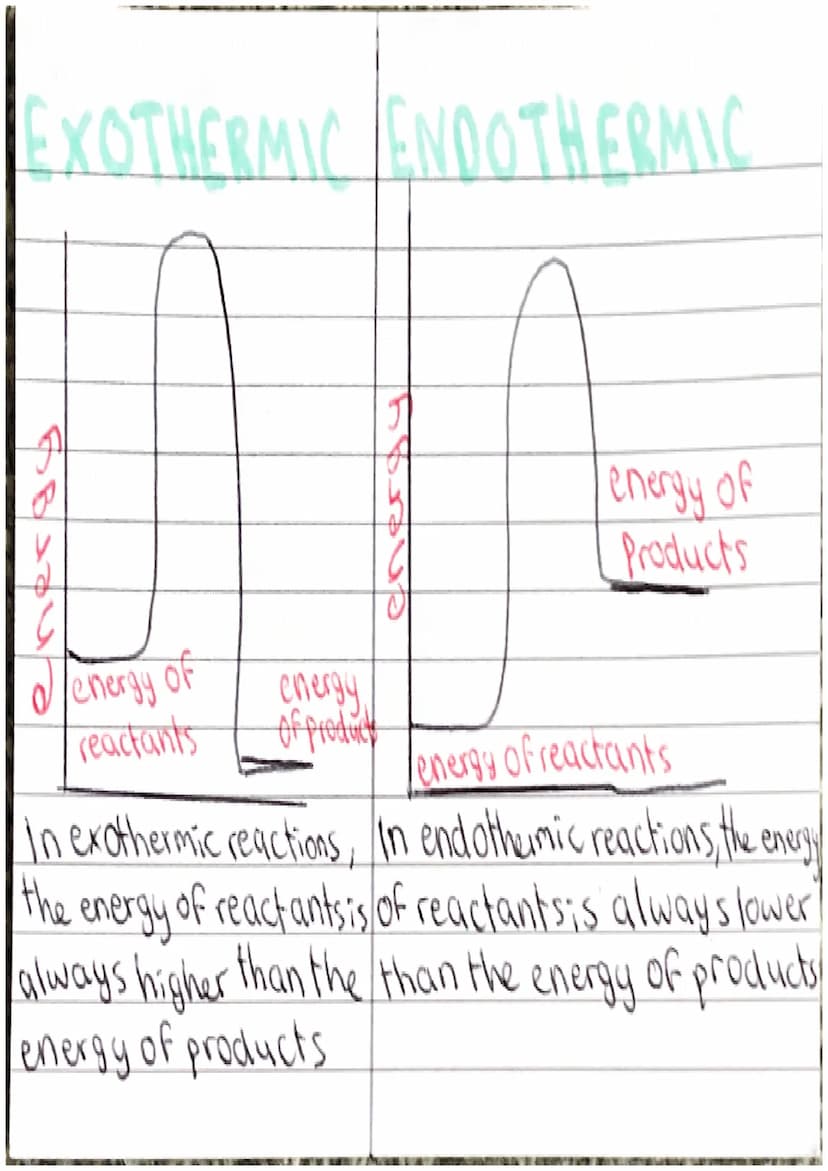 EXOTHERMIC
energy
energy of
reactants
energy
of product
In exothermic reactions,
the energy of reactants is
always higher than the
energy of products
ENDOTHERMIC
energy
energy of
products
energy of reactants
In endothermic reactions, the energy
of reactants is always lower
than the energy of products